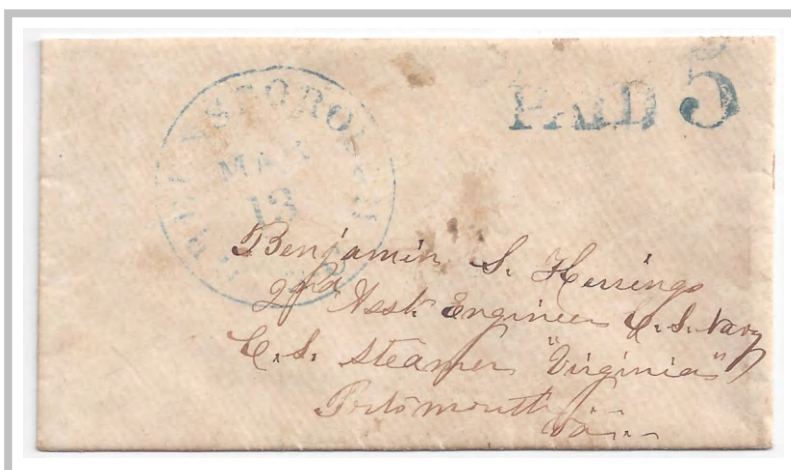 PAID 5
MAR
13
Benjamin S. Herring
2nd Asst. Engineer C.S. Navy
C.S. Steamer "Virginia"
Portsmouth
Va.